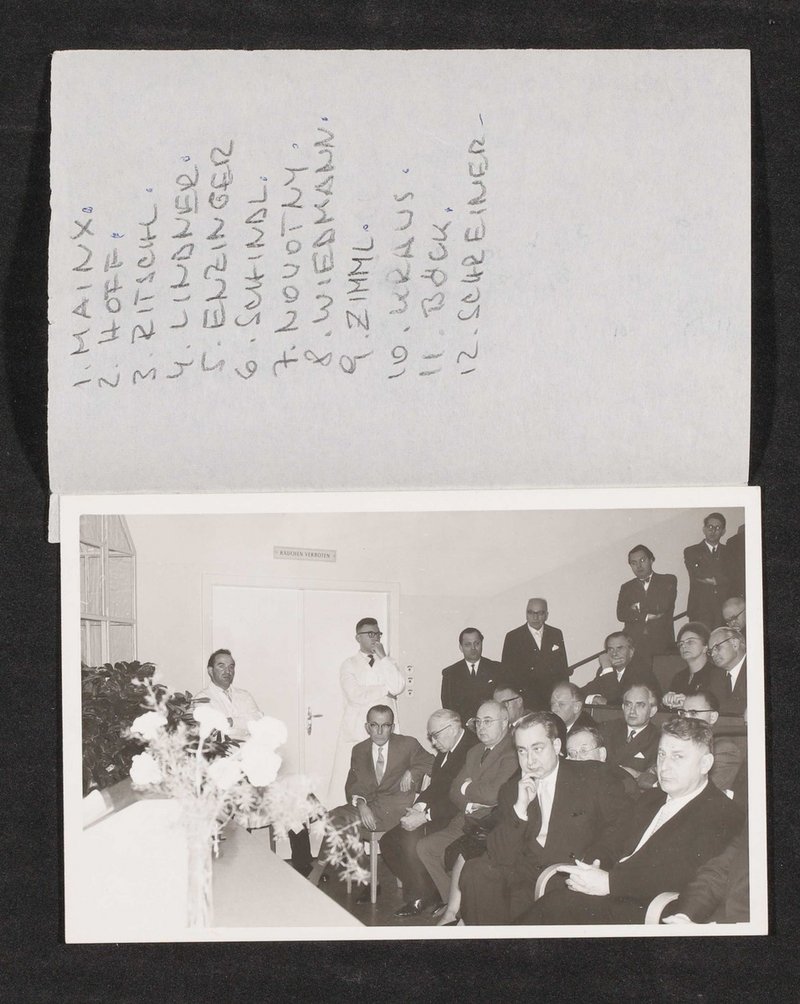 1. MAINX.
2. HOFF.
3. RITSCHL.
4. LINDNER.
5. ENZINGER
6. SCHINDL.
7. NOVOTNY.
8. WIEDMANN.
9. ZIMML.
10. URAUS.
11. BÖCK.
12. SCHREINER-
RAUCHEN VERBOTEN